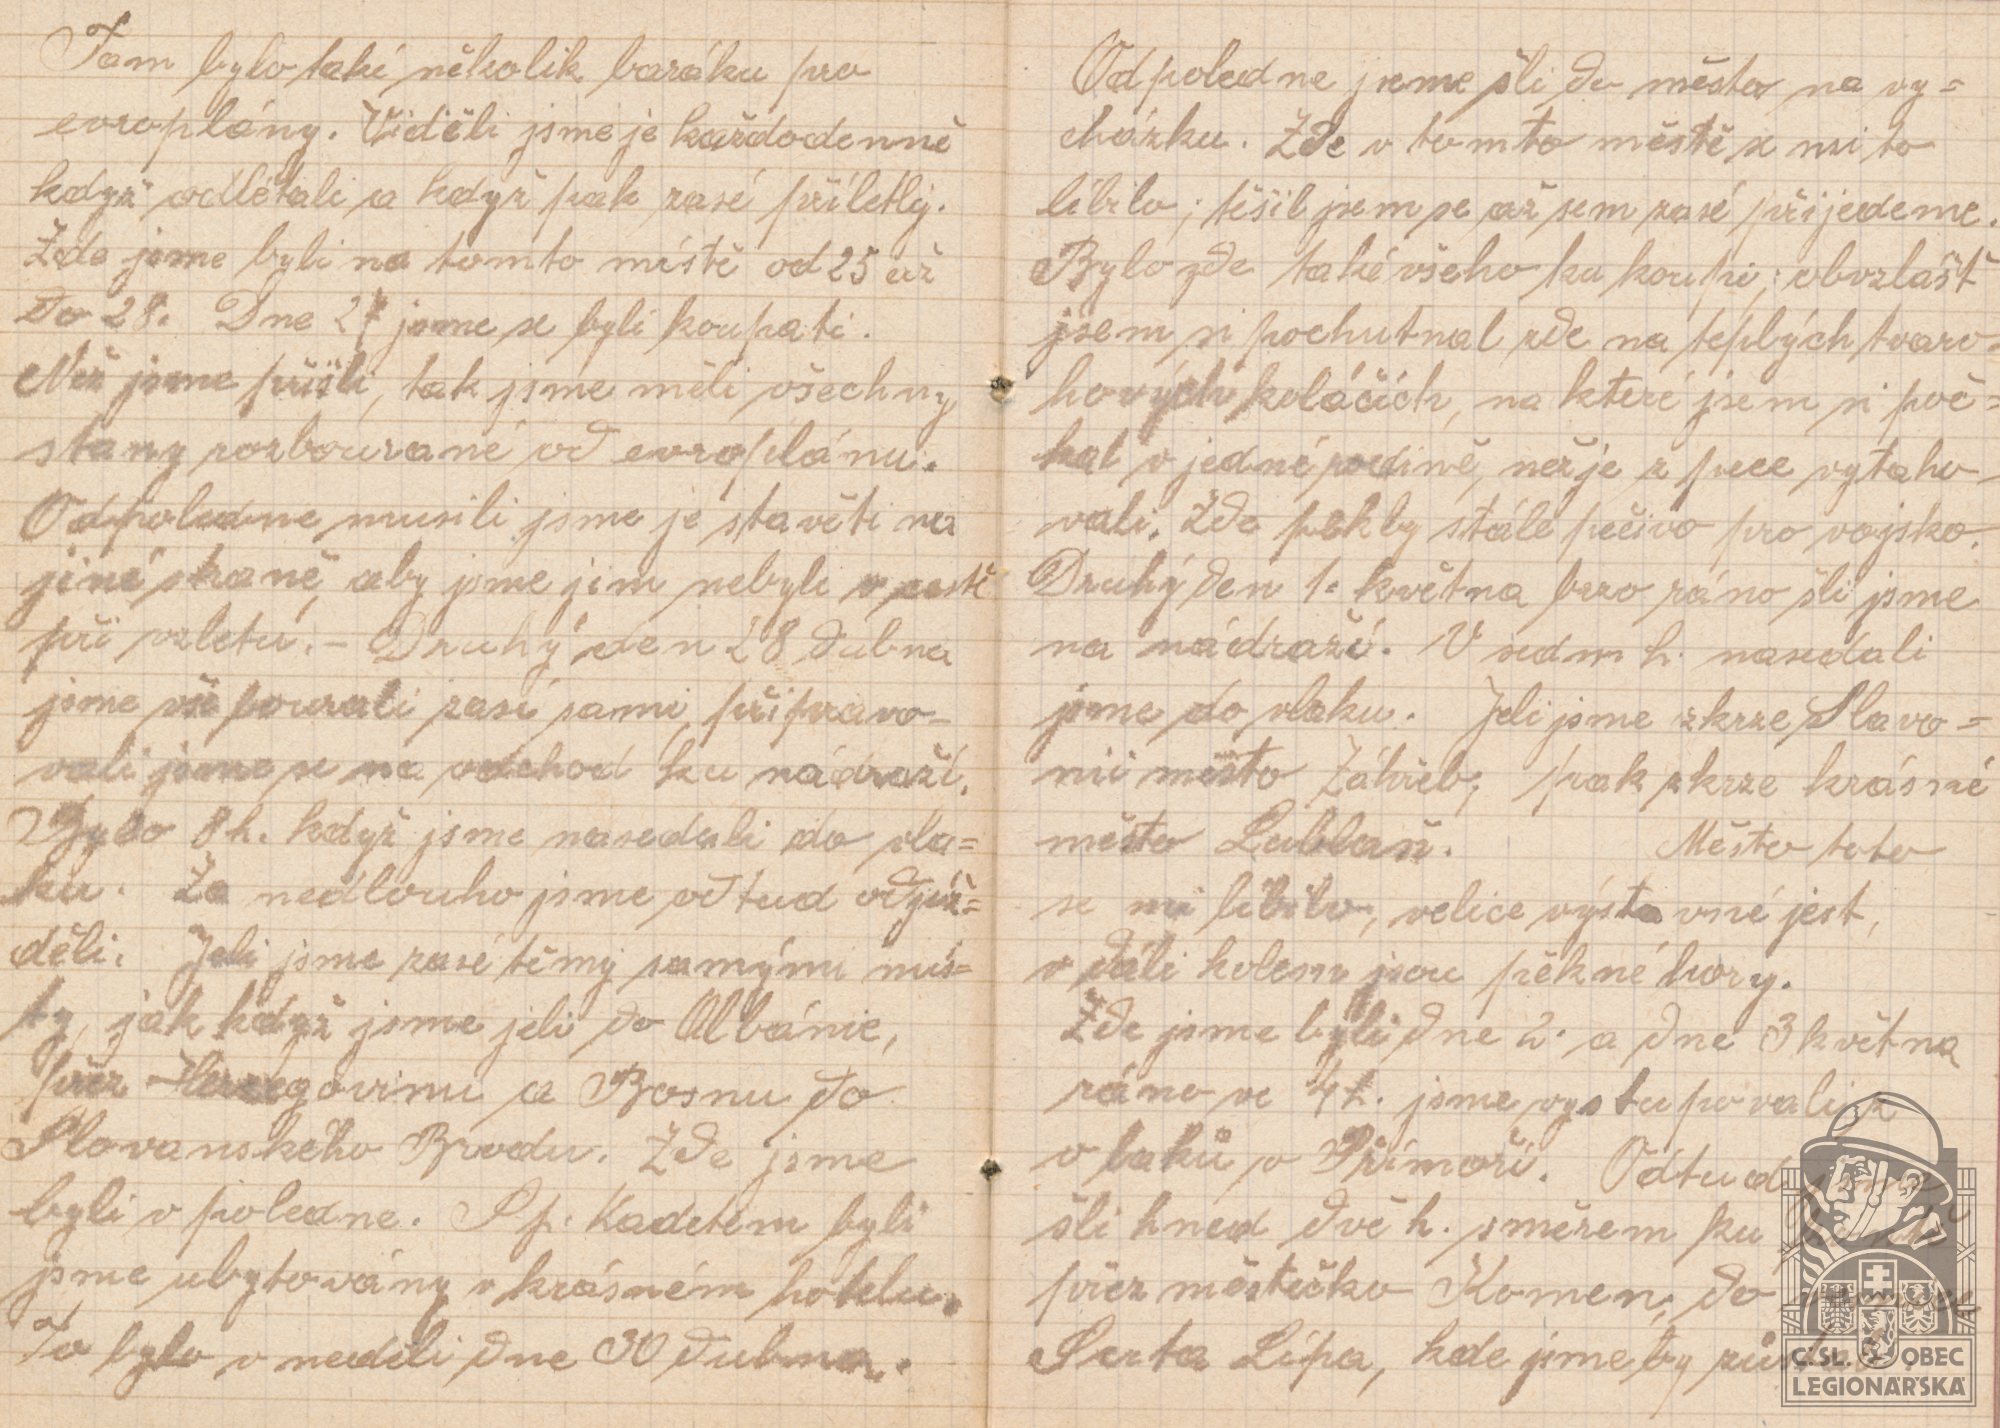 Tam bylo také několik baráku pro
evroplány. Viděli jsme je každodenně
když odlétali a když pak zasé příletlÿ.
Zde jsme byli na tomto místě od 25 až
do 28. Dne 27 jsme se byli koupati.
Než jsme přišli, tak jsme měli všechny
stany rozbourané od evroplánu.
Odpoledne musili jsme je stavěti na
jiné straně, aby jsme jim nebyli v cestě
při vzletu. – Druhý den 28 dubna
jsme vše pourali zasí sami, připravo-
vali jsme se na odchod ku nádraží.
Bylo 8 h. když jsme nasedali do vla=
ku. Za nedlouho jsme od tud odjíž=
děli. Jeli jsme zasé těmy samými mís=
ty, jak když jsme jeli do Albánie,
přez Herzegovinu a Bosnu do
Slovanského Brodu. Zde jsme
byli v poledne. S p. Kadetem byli
jsme ubytovány v krásném hotelu.
To bylo v neděli dne 30 dubna.
Odpoledne jsme šli do města na vy=
cházku. Zde v tomto městě se mi to
líbilo; těšil jsem se až sem zasé přijedeme.
Bylo zde také všeho ku koupi; obvzlášť
jsem si pochutnal zde na teplých tvaro-
hových koláčích, na které jsem si poč=
kal v jedné rodině, než je z pece vytaho-
vali. Zde pekly stále pečivo pro vojsko.
Druhý den 1. května brzo ráno šli jsme
na nádraží. V sedm h. nasedali
jsme do vlaku. Jeli jsme zkrze Slavo=
nii město Záhřeb; pak zkrze krásné
město Lublaň. Město toto
se mi líbilo, velice výstavné jest,
v dáli kolem jsou pěkné hory.
Zde jsme byli dne 2. a dne 3 května
ráno ve 4 h. jsme vystupovali z
vlaků v Přímoří. Odtud jsme
šli hned dvě h. směrem ku
přez městečko Komen, do
Serta Lípa, kde jsme by
Č. SL. OBEC
LEGIONÁŘSKÁ